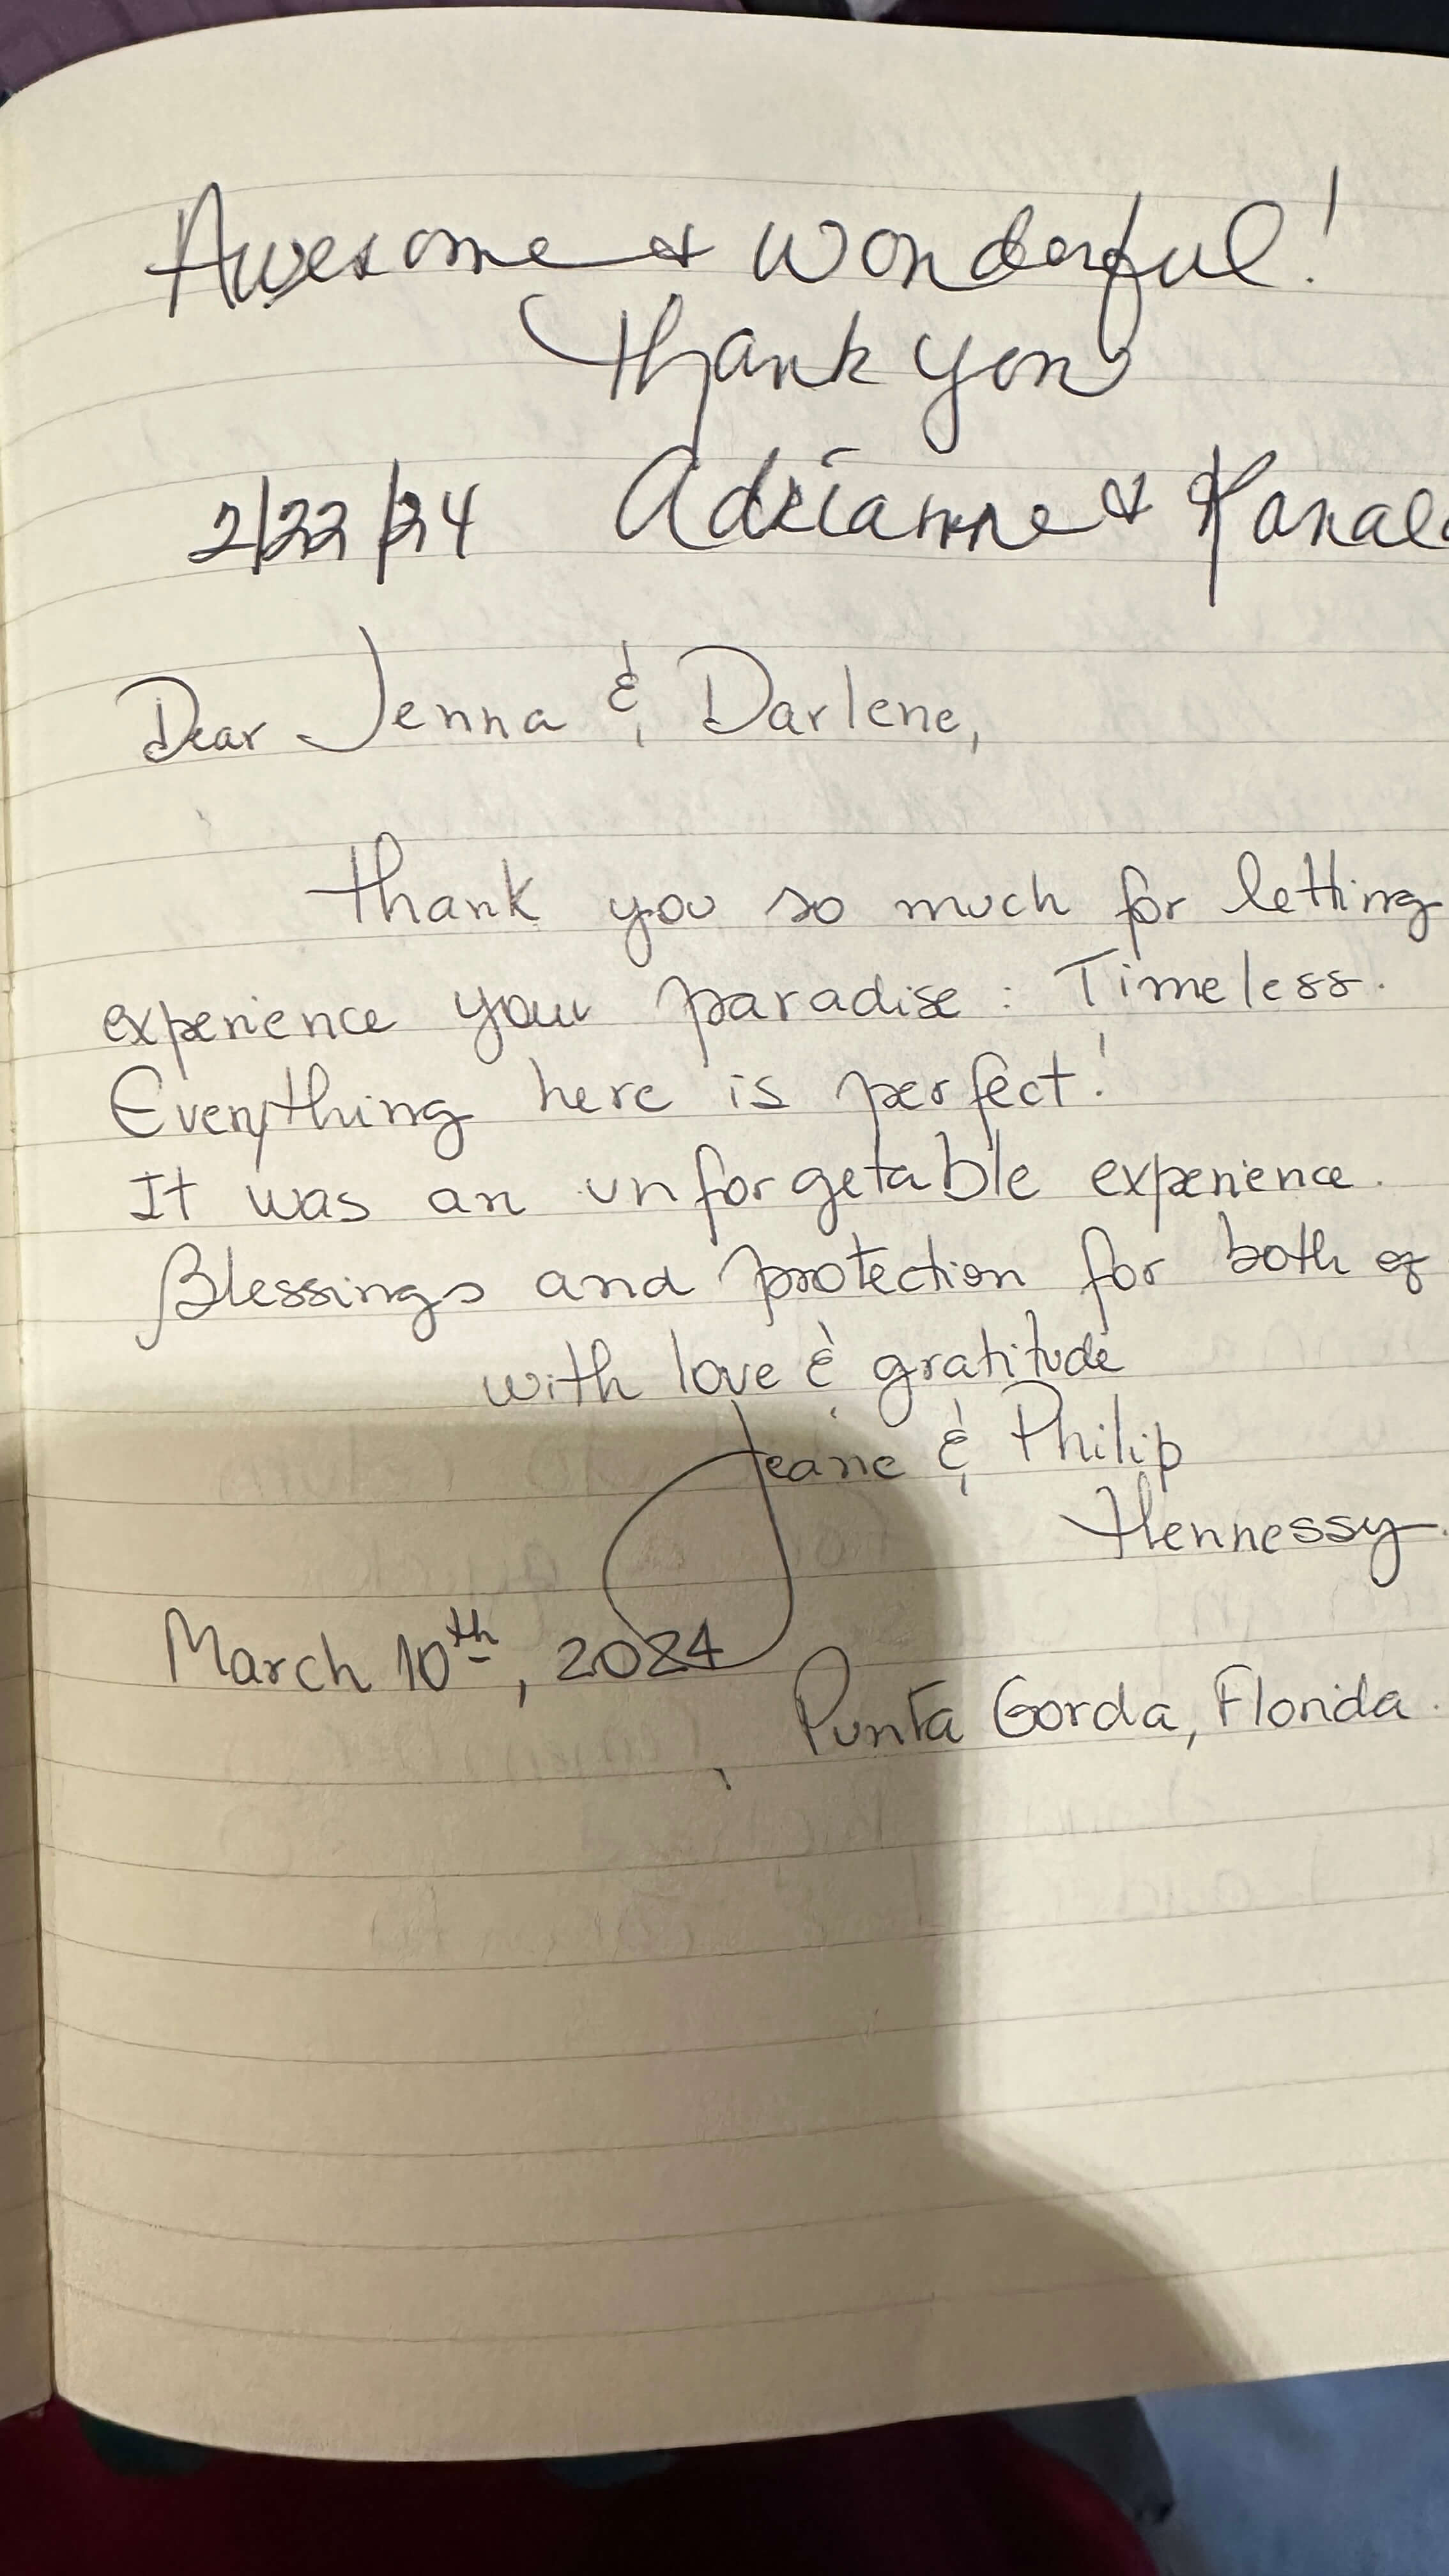 Awesome & Wonderful!
Thank you
2/22/24 Adrianne &
Dear Jenna & Darlene,
Thank you so much for letting
experience your paradise: Timeless.
Everything here is perfect!
It was an unforgetable experience.
Blessings and protection for both of
with love & gratitude
Jeane & Philip
Hennessy.
March 10th, 2024
Punta Gorda, Florida.